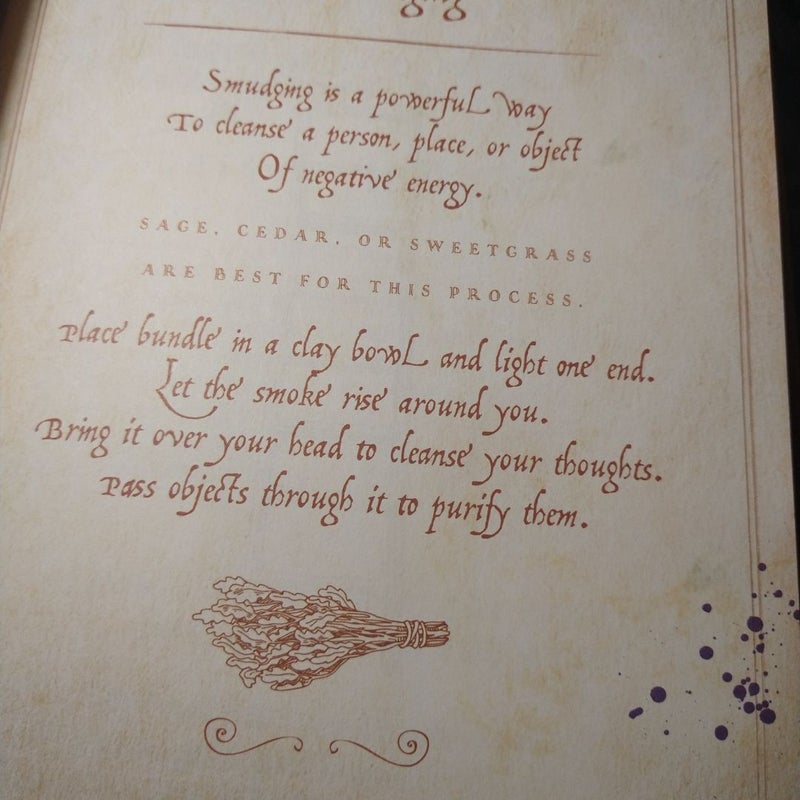 Smudging is a powerful way
To cleanse a person, place, or object
Of negative energy.
SAGE, CEDAR, OR SWEETGRASS
ARE BEST FOR THIS PROCESS.
Place bundle in a clay bowl and light one end.
Let the smoke rise around you.
Bring it over your head to cleanse your thoughts.
Pass objects through it to purify them.